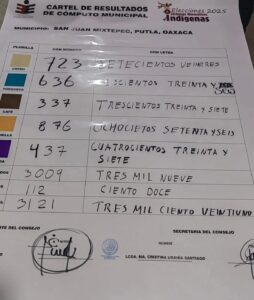 CARTEL DE RESULTADOS
DE CÓMPUTO MUNICIPAL
Elecciones 2025
Indígenas
MUNICIPIO: SAN JUAN MIXTEPEC, PUTLA, OAXACA
PLANILLA CON NÚMERO CON LETRA
723 SETECIENTOS VEINTITRES
636 SEISCIENTOS TREINTA Y SEIS
CAFÉ 337 TRESCIENTOS TREINTA Y SIETE
876 OCHOCIETOS SETENTA Y SEIS
437 CUATROCIENTOS TREINTA Y
SIETE
3009 TRES MIL NUEVE
112 CIENTO DOCE
3121 TRES MIL CIENTO VEINTIUNO
DEL CONSEJO SECRETARIA DEL CONSEJO
NOMBRE
LCDA. MA. CRISTINA SANTIAGO